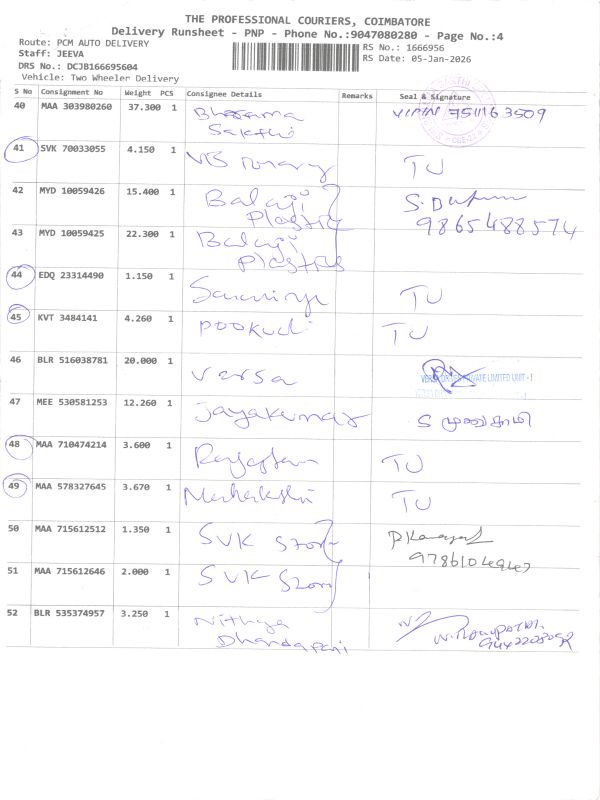 THE PROFESSIONAL COURIERS, COIMBATORE
Delivery Runsheet - PNP - Phone No.:9047080280 - Page No.:4
Route: PCM AUTO DELIVERY
RS No.: 1666956
Staff: JEEVA
RS Date: 05-Jan-2026
DRS No.: DCJB166695604
Vehicle: Two Wheeler Delivery
S No Consignment No Weight PCS Consignee Details Remarks Seal & Signature
40 MAA 303980260 37.300 1 VIPIN 7511163509
Sakthi
41 SVK 70033055 4.150 1 TU
42 MYD 10059426 15.400 1 Balaji
Plastics 9865488574
43 MYD 10059425 22.300 1 Balaji
Plastics
44 EDQ 23314490 1.150 1 TU
45 KVT 3484141 4.260 1 pookudi TU
46 BLR 516038781 20.000 1 Versa PRIVATE LIMITED UNIT -1
47 MEE 530581253 12.260 1 Jayakumar
48 MAA 710474214 3.600 1 TU
49 MAA 578327645 3.670 1 TU
50 MAA 715612512 1.350 1 SVK Story
51 MAA 715612646 2.000 1 SVK Story
52 BLR 535374957 3.250 1 Nithya
Dhandapani